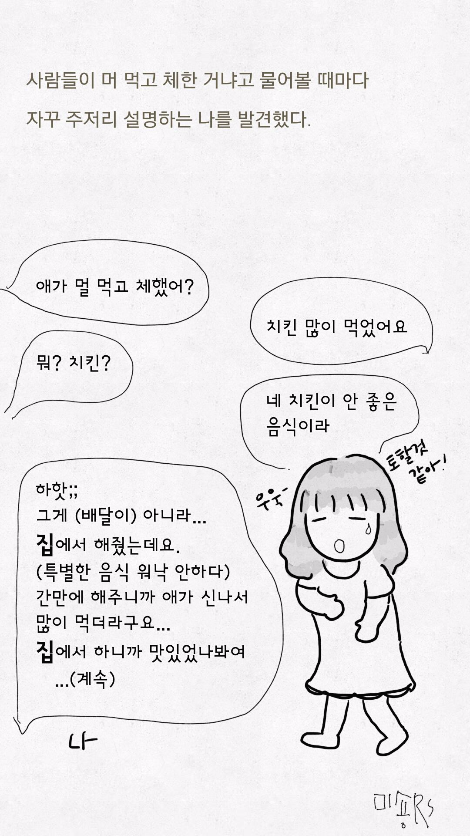 사람들이 머 먹고 체한 거냐고 물어볼 때마다
자꾸 주저리 설명하는 나를 발견했다.
애가 멀 먹고 체했어?
치킨 많이 먹었어요
뭐? 치킨?
네 치킨이 안 좋은
음식이라
토할것
같아!
우욱~
하핫;;
그게 (배달이) 아니라...
집에서 해줬는데요.
(특별한 음식 워낙 안하다)
간만에 해주니까 애가 신나서
많이 먹더라구요...
집에서 하니까 맛있었나봐여
...(계속)
나